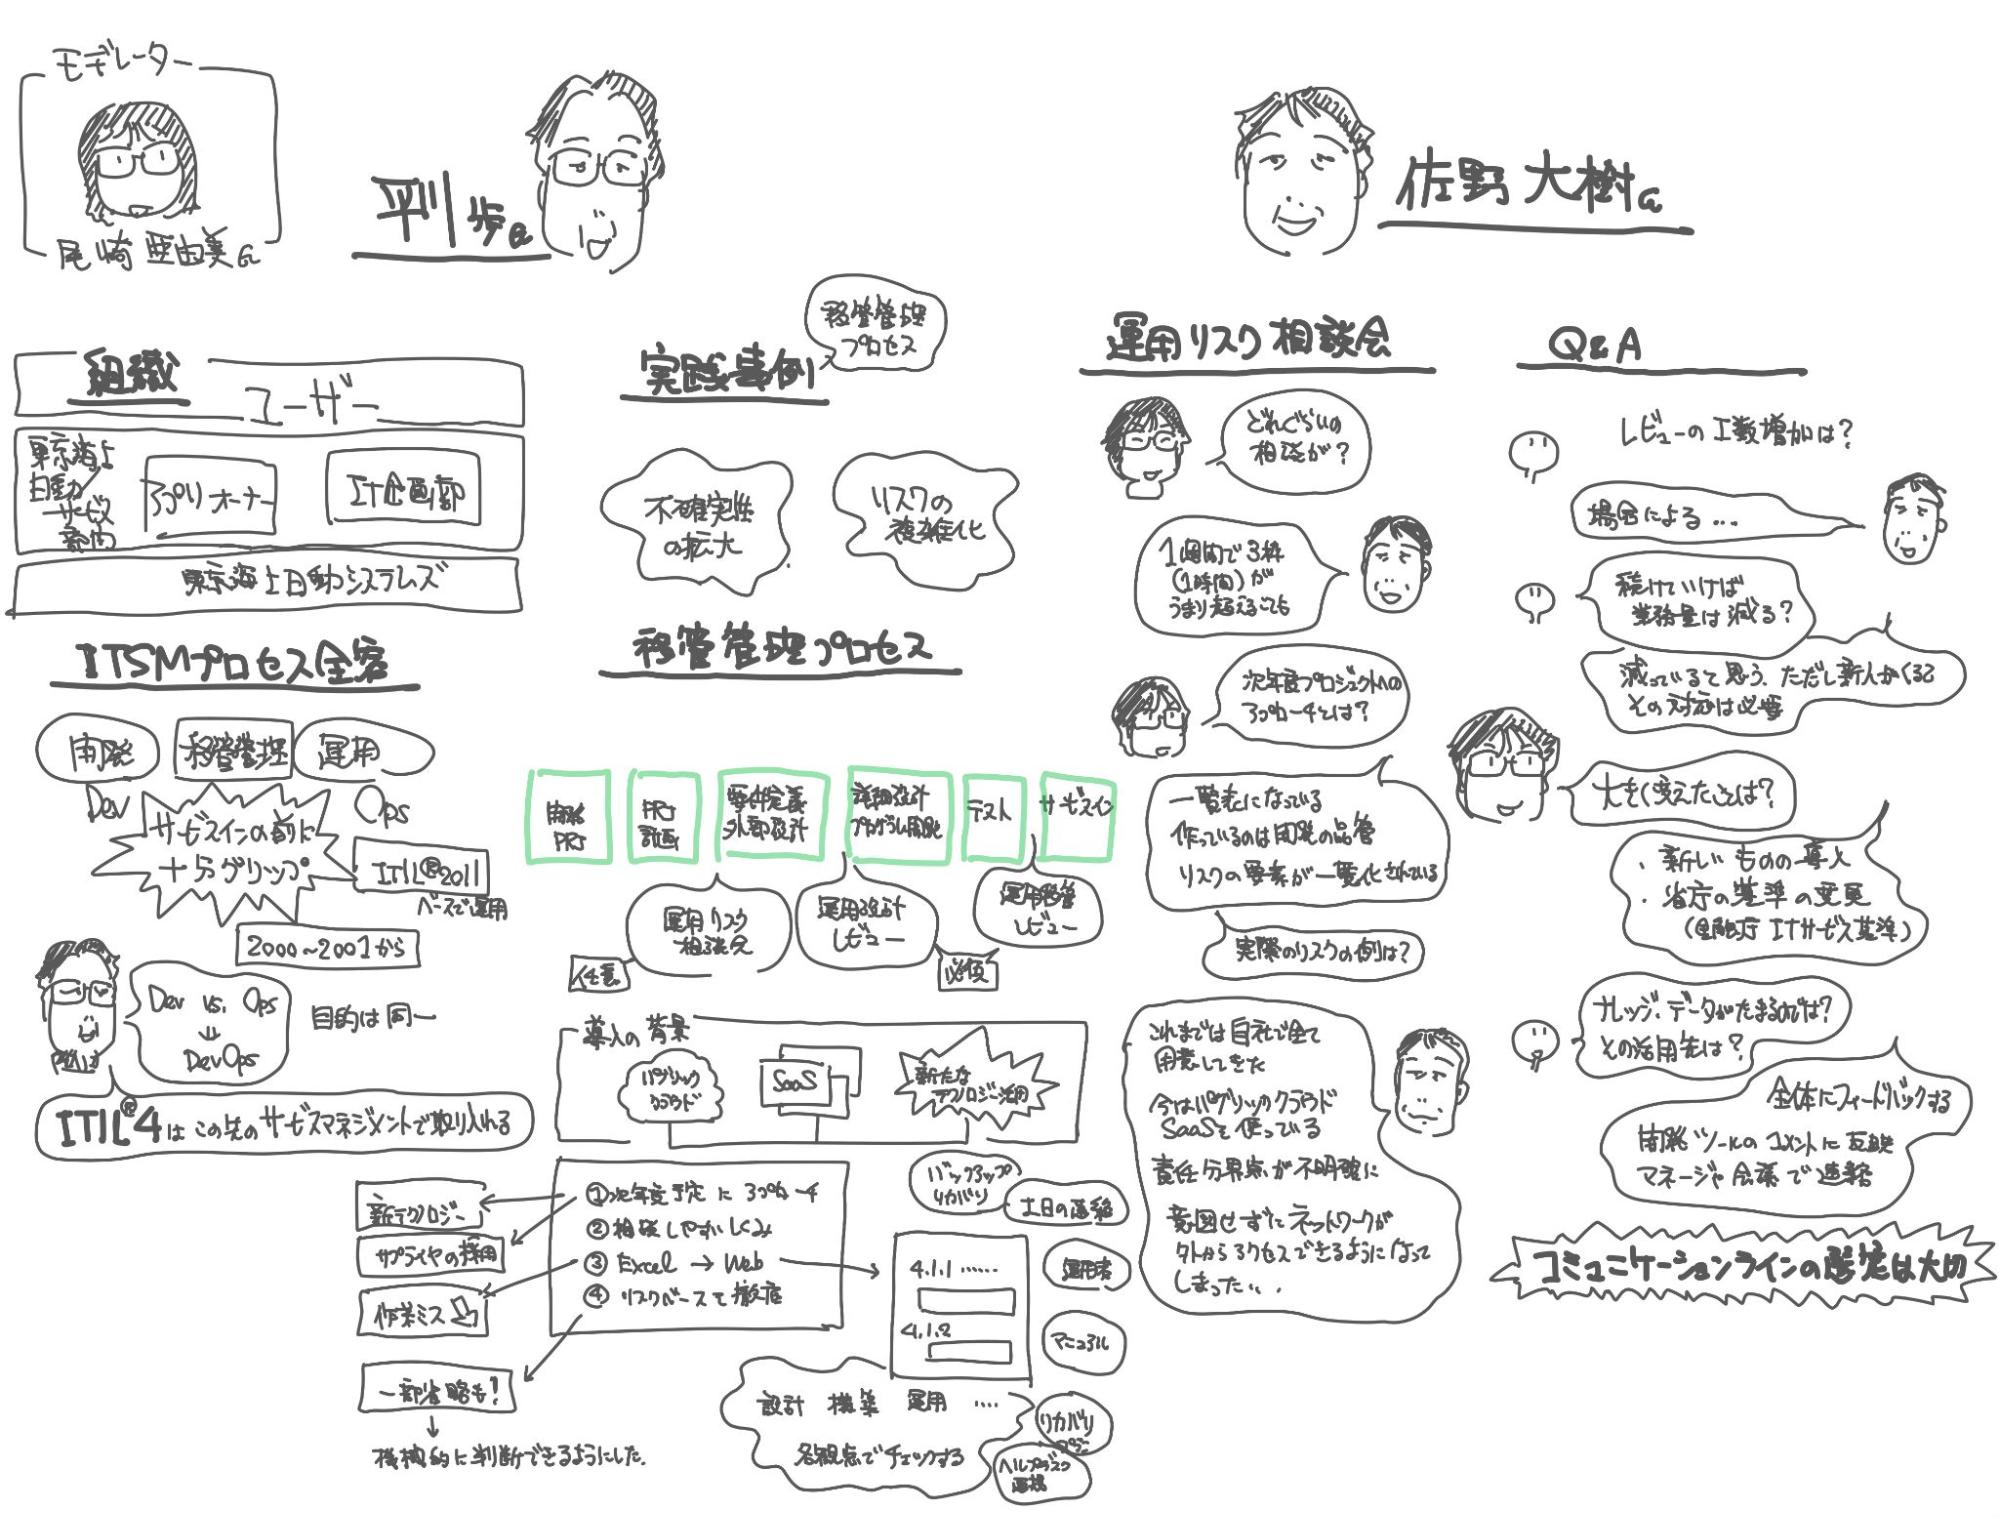 モデレーター
尾崎 亜由美さん
平川 歩さん
佐野 大樹さん
組織
ユーザー
東京海上
日動
サービス
部内
アプリオーナー
IT企画部
東京海上日動システムズ
ITSMプロセス全容
開発
移管管理
運用
Dev
Ops
サービスインの前に
十分グリップ
ITIL®2011
ベースで運用
2000〜2001から
Dev vs. Ops
⇓
DevOps
目的は同一
ITIL®4は この先のサービスマネジメントで取り入れる
実践事例
移管管理
プロセス
不確実性
の拡大
リスクの
複雑化
移管管理プロセス
開発
PRJ
PRJ
計画
要件定義
外部設計
詳細設計
プログラム開発
テスト
サービスイン
運用リスク
相談会
運用設計
レビュー
運用移管
レビュー
任意
必須
導入の背景
パブリック
クラウド
SaaS
新たな
テクノロジー活用
①次年度予定にアプローチ
②相談しやすいしくみ
③Excel → Web
④リスクベースで徹底
新テクノロジー
サプライヤの採用
作業ミス
一部省略も!
機械的に判断できるようにした.
バックアップ
リカバリ
土日の連絡
4.1.1 ……
4.1.2
運用者
マニュアル
リカバリ
プラン
ヘルプデスク
連携
設計 構築 運用 ….
各観点でチェックする
運用リスク相談会
どれぐらいの
相談が?
1週間で3枠
(1時間)が
うまり超えることも
次年度プロジェクトへの
アプローチとは?
一覧表になっている
作っているのは開発の品管
リスクの要素が一覧化されている
実際のリスクの例は?
これまでは自社で全て
用意してきた
今はパブリッククラウド
SaaSを使っている
責任分界点が不明確に
意図せずにネットワークが
外からアクセスできるようになって
しまった…
Q&A
レビューの工数増加は?
場合による…
続けていけば
業務量は減る?
減っていると思う. ただし新人がくると
その対応は必要
大きく変えたことは?
・新しいものの導入
・省庁の基準の変更
(金融庁 ITサービス基準)
ナレッジ、データがたまるのでは?
その活用先は?
全体にフィードバックする
開発ツールのコメントに反映
マネージャ会議で連絡
コミュニケーションラインの選定は大切